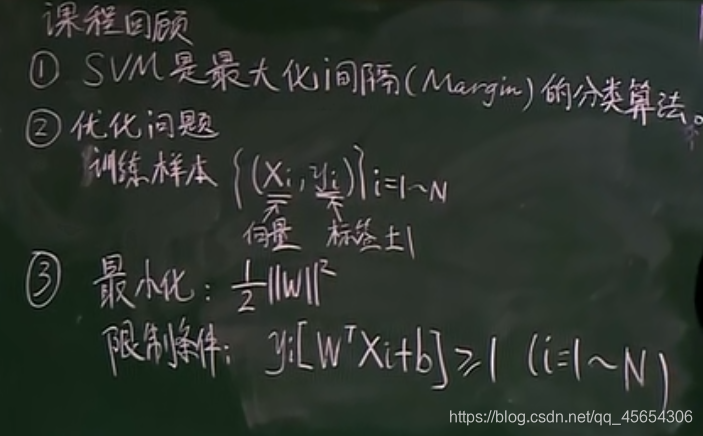 课程回顾
① SVM是最大化间隔(Margin)的分类算法。
② 优化问题
训练样本 {(Xi, yi)}i=1~N
向量 标签±1
③ 最小化: 1/2||W||²
限制条件: yi[WᵀXi+b]≥1 (i=1~N)
https://blog.csdn.net/qq_45654306